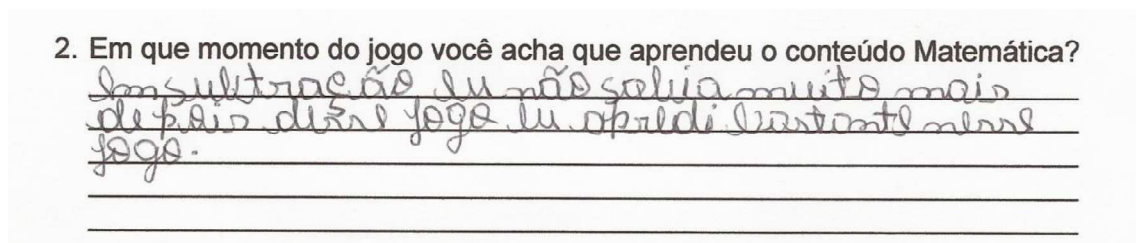 2. Em que momento do jogo você acha que aprendeu o conteúdo Matemática?
Em sultração eu não salia muito mais
depois desse jogo eu apredi bastante nesse
jogo.